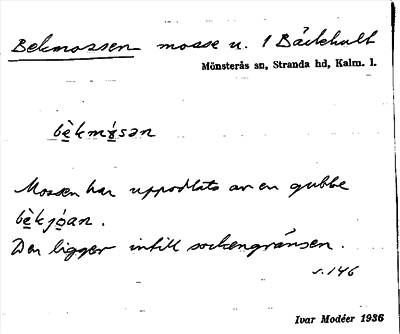 Bekmossen mosse u. 1 Bäckhult
Mönsterås sn, Stranda hd, Kalm. l.
bè̱kmó̱sən
Mossen har uppodlats av en gubbe
bè̱kjó̱an.
Den ligger intill sockengränsen.
s. 146
Ivar Modéer 1936